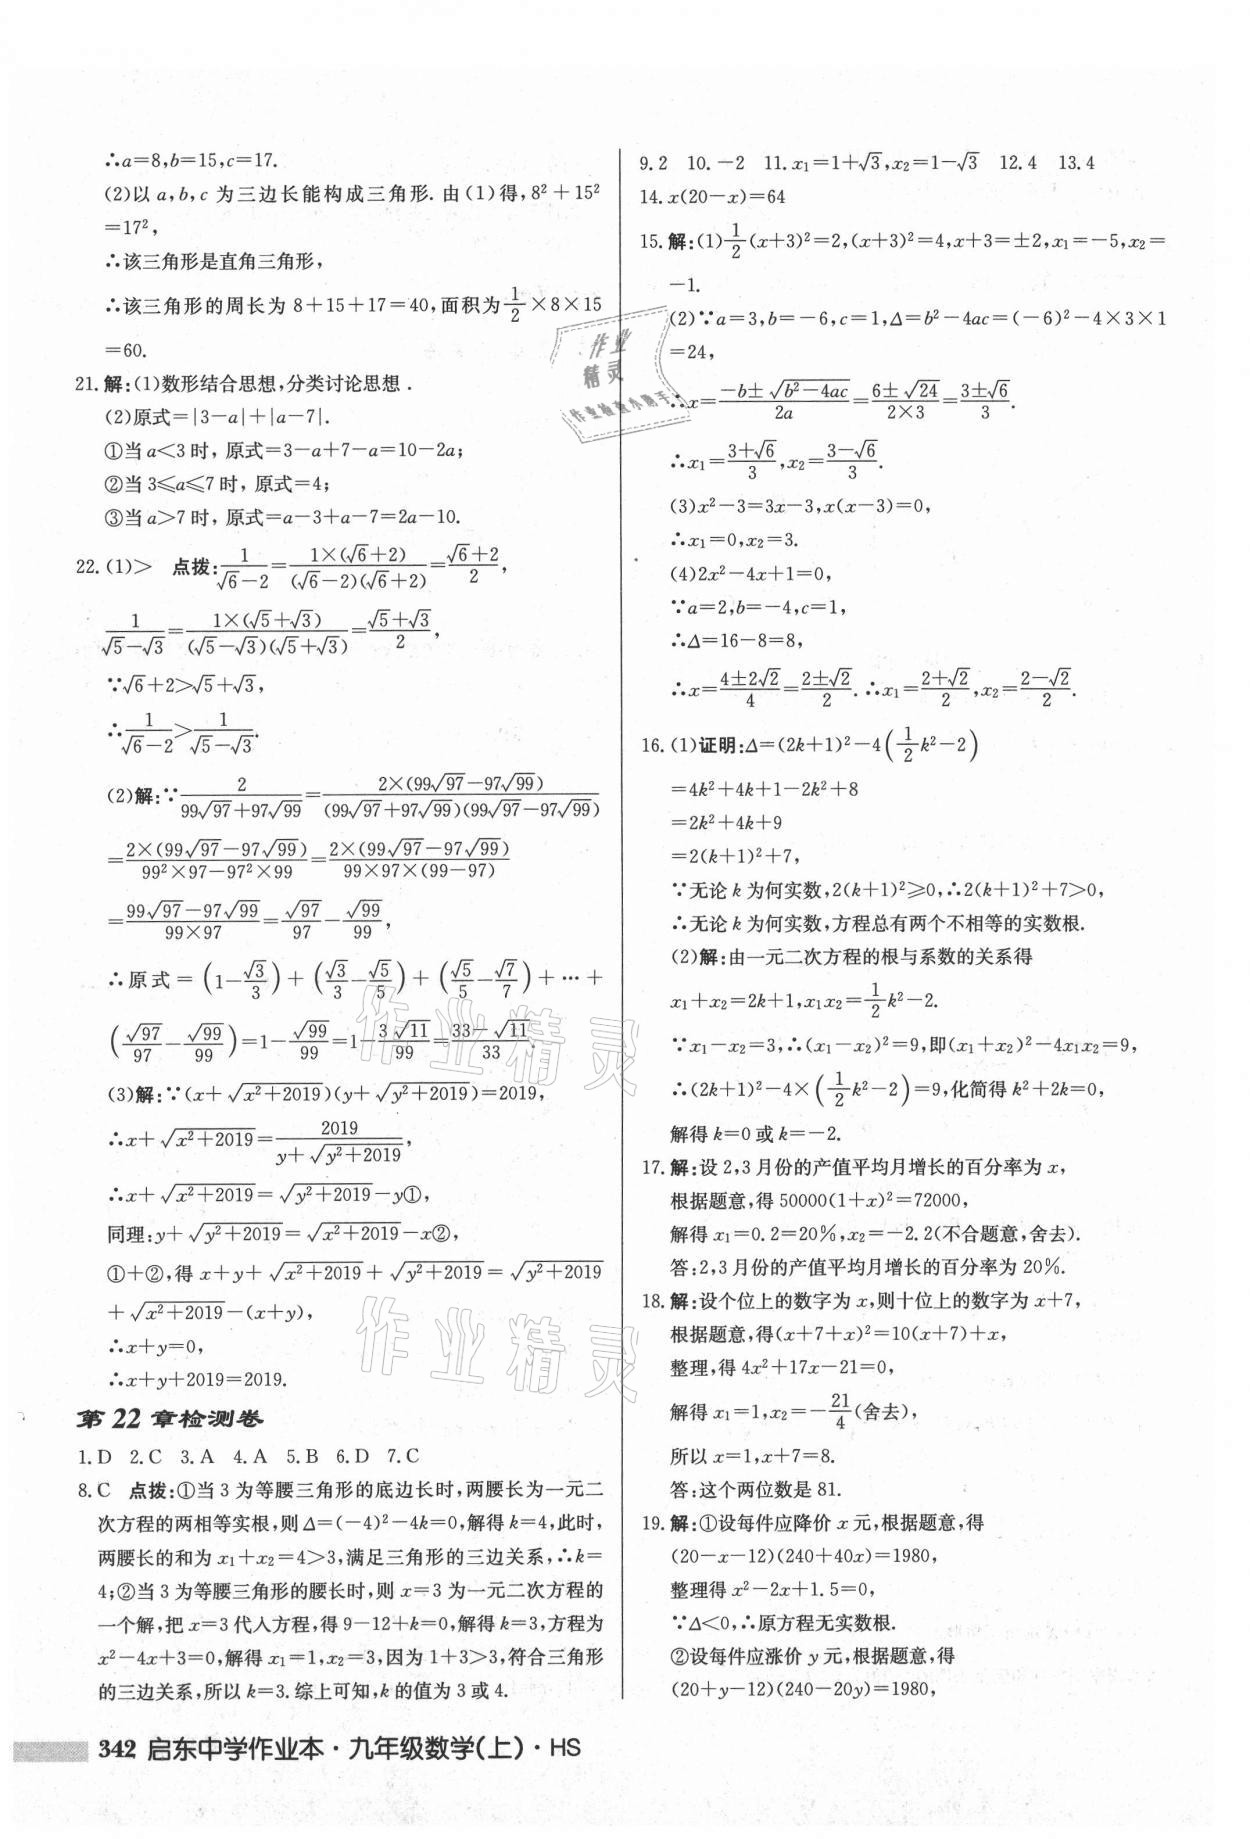 ∴a=8,b=15,c=17.
(2)以 a,b,c 为三边长能构成三角形. 由(1)得,8²+15²
=17²,
∴该三角形是直角三角形,
∴该三角形的周长为 8+15+17=40,面积为 1/2×8×15
=60.
21. 解:(1)数形结合思想,分类讨论思想.
(2)原式=|3-a|+|a-7|.
①当 a<3 时, 原式=3-a+7-a=10-2a;
②当 3≤a≤7 时, 原式=4;
③当 a>7 时, 原式=a-3+a-7=2a-10.
22. (1)> 点拨: 1/(√6-2)=1×(√6+2)/((√6-2)(√6+2))=(√6+2)/2,
1/(√5-√3)=1×(√5+√3)/((√5-√3)(√5+√3))=(√5+√3)/2,
∵√6+2>√5+√3,
∴1/(√6-2)>1/(√5-√3).
(2)解:∵2/(99√97+97√99)=2×(99√97-97√99)/((99√97+97√99)(99√97-97√99))
=2×(99√97-97√99)/(99²×97-97²×99)=2×(99√97-97√99)/(99×97×(99-97))
=(99√97-97√99)/(99×97)=√97/97-√99/99,
∴原式=(1-√3/3)+(√3/3-√5/5)+(√5/5-√7/7)+…+
(√97/97-√99/99)=1-√99/99=1-3√11/99=(33-√11)/33.
(3)解:∵(x+√(x²+2019))(y+√(y²+2019))=2019,
∴x+√(x²+2019)=2019/(y+√(y²+2019)),
∴x+√(x²+2019)=√(y²+2019)-y①,
同理:y+√(y²+2019)=√(x²+2019)-x②,
①+②,得 x+y+√(x²+2019)+√(y²+2019)=√(y²+2019)
+√(x²+2019)-(x+y),
∴x+y=0,
∴x+y+2019=2019.
第 22 章检测卷
1. D 2. C 3. A 4. A 5. B 6. D 7. C
8. C 点拨:①当 3 为等腰三角形的底边长时,两腰长为一元二
次方程的两相等实根,则 Δ=(-4)²-4k=0,解得 k=4,此时,
两腰长的和为 x₁+x₂=4>3,满足三角形的三边关系,∴k=
4;②当 3 为等腰三角形的腰长时,则 x=3 为一元二次方程的
一个解,把 x=3 代入方程,得 9-12+k=0,解得 k=3,方程为
x²-4x+3=0,解得 x₁=1,x₂=3,因为 1+3>3,符合三角形
的三边关系,所以 k=3. 综上可知,k 的值为 3 或 4.
9. 2 10. -2 11. x₁=1+√3,x₂=1-√3 12. 4 13. 4
14. x(20-x)=64
15. 解:(1)1/2(x+3)²=2,(x+3)²=4,x+3=±2,x₁=-5,x₂=
-1.
(2)∵a=3,b=-6,c=1,Δ=b²-4ac=(-6)²-4×3×1
=24,
∴x=(-b±√(b²-4ac))/2a=(6±√24)/(2×3)=(3±√6)/3.
∴x₁=(3+√6)/3,x₂=(3-√6)/3.
(3)x²-3=3x-3,x(x-3)=0,
∴x₁=0,x₂=3.
(4)2x²-4x+1=0,
∵a=2,b=-4,c=1,
∴Δ=16-8=8,
∴x=(4±2√2)/4=(2±√2)/2. ∴x₁=(2+√2)/2,x₂=(2-√2)/2.
16. (1)证明:Δ=(2k+1)²-4(1/2k²-2)
=4k²+4k+1-2k²+8
=2k²+4k+9
=2(k+1)²+7,
∵无论 k 为何实数,2(k+1)²≥0,∴2(k+1)²+7>0,
∴无论 k 为何实数,方程总有两个不相等的实数根.
(2)解:由一元二次方程的根与系数的关系得
x₁+x₂=2k+1,x₁x₂=1/2k²-2.
∵x₁-x₂=3,∴(x₁-x₂)²=9,即(x₁+x₂)²-4x₁x₂=9,
∴(2k+1)²-4×(1/2k²-2)=9,化简得 k²+2k=0,
解得 k=0 或 k=-2.
17. 解:设 2,3 月份的产值平均月增长的百分率为 x,
根据题意,得 50000(1+x)²=72000,
解得 x₁=0.2=20%,x₂=-2.2(不合题意,舍去).
答:2,3 月份的产值平均月增长的百分率为 20%.
18. 解:设个位上的数字为 x,则十位上的数字为 x+7,
根据题意,得(x+7+x)²=10(x+7)+x,
整理,得 4x²+17x-21=0,
解得 x₁=1,x₂=-21/4(舍去),
所以 x=1,x+7=8.
答:这个两位数是 81.
19. 解:①设每件应降价 x 元,根据题意,得
(20-x-12)(240+40x)=1980,
整理得 x²-2x+1.5=0,
∵Δ<0,∴原方程无实数根.
②设每件应涨价 y 元,根据题意,得
(20+y-12)(240-20y)=1980,
342 启东中学作业本·九年级数学(上)·HS
作业
精灵
作业检查小助手
作业精灵
作业精灵